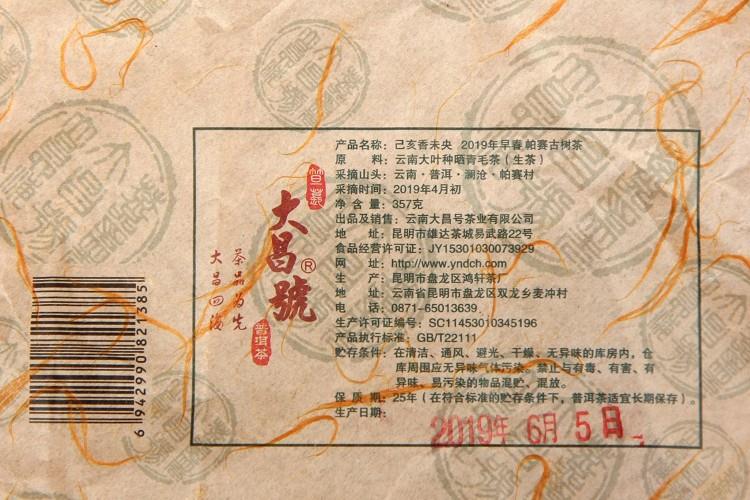 产品名称：己亥香未央 2019年早春帕赛古树茶
原 料：云南大叶种晒青毛茶（生茶）
采摘山头：云南·普洱·澜沧·帕赛村
采摘时间：2019年4月初
净 含 量：357克
出品及销售：云南大昌号茶业有限公司
地 址：昆明市雄达茶城易武路22号
食品经营许可证：JY15301030073929
网 址：http://www.yndch.com
生 产：昆明市盘龙区鸿轩茶厂
地 址：云南省昆明市盘龙区双龙乡麦冲村
电 话：0871-65013639
生产许可证编号：SC11453010345196
产品执行标准：GB/T22111
贮存条件：在清洁、通风、避光、干燥、无异味的库房内，仓
库周围应无异味气体污染。禁止与有毒、有害、有
异味、易污染的物品混贮、混放。
保 质 期：25年（在符合标准的贮存条件下，普洱茶适宜长期保存）。
生产日期：
2019年 6月 5日
大昌號®
普洱茶
茶品为先
大昌四海
6942990821385